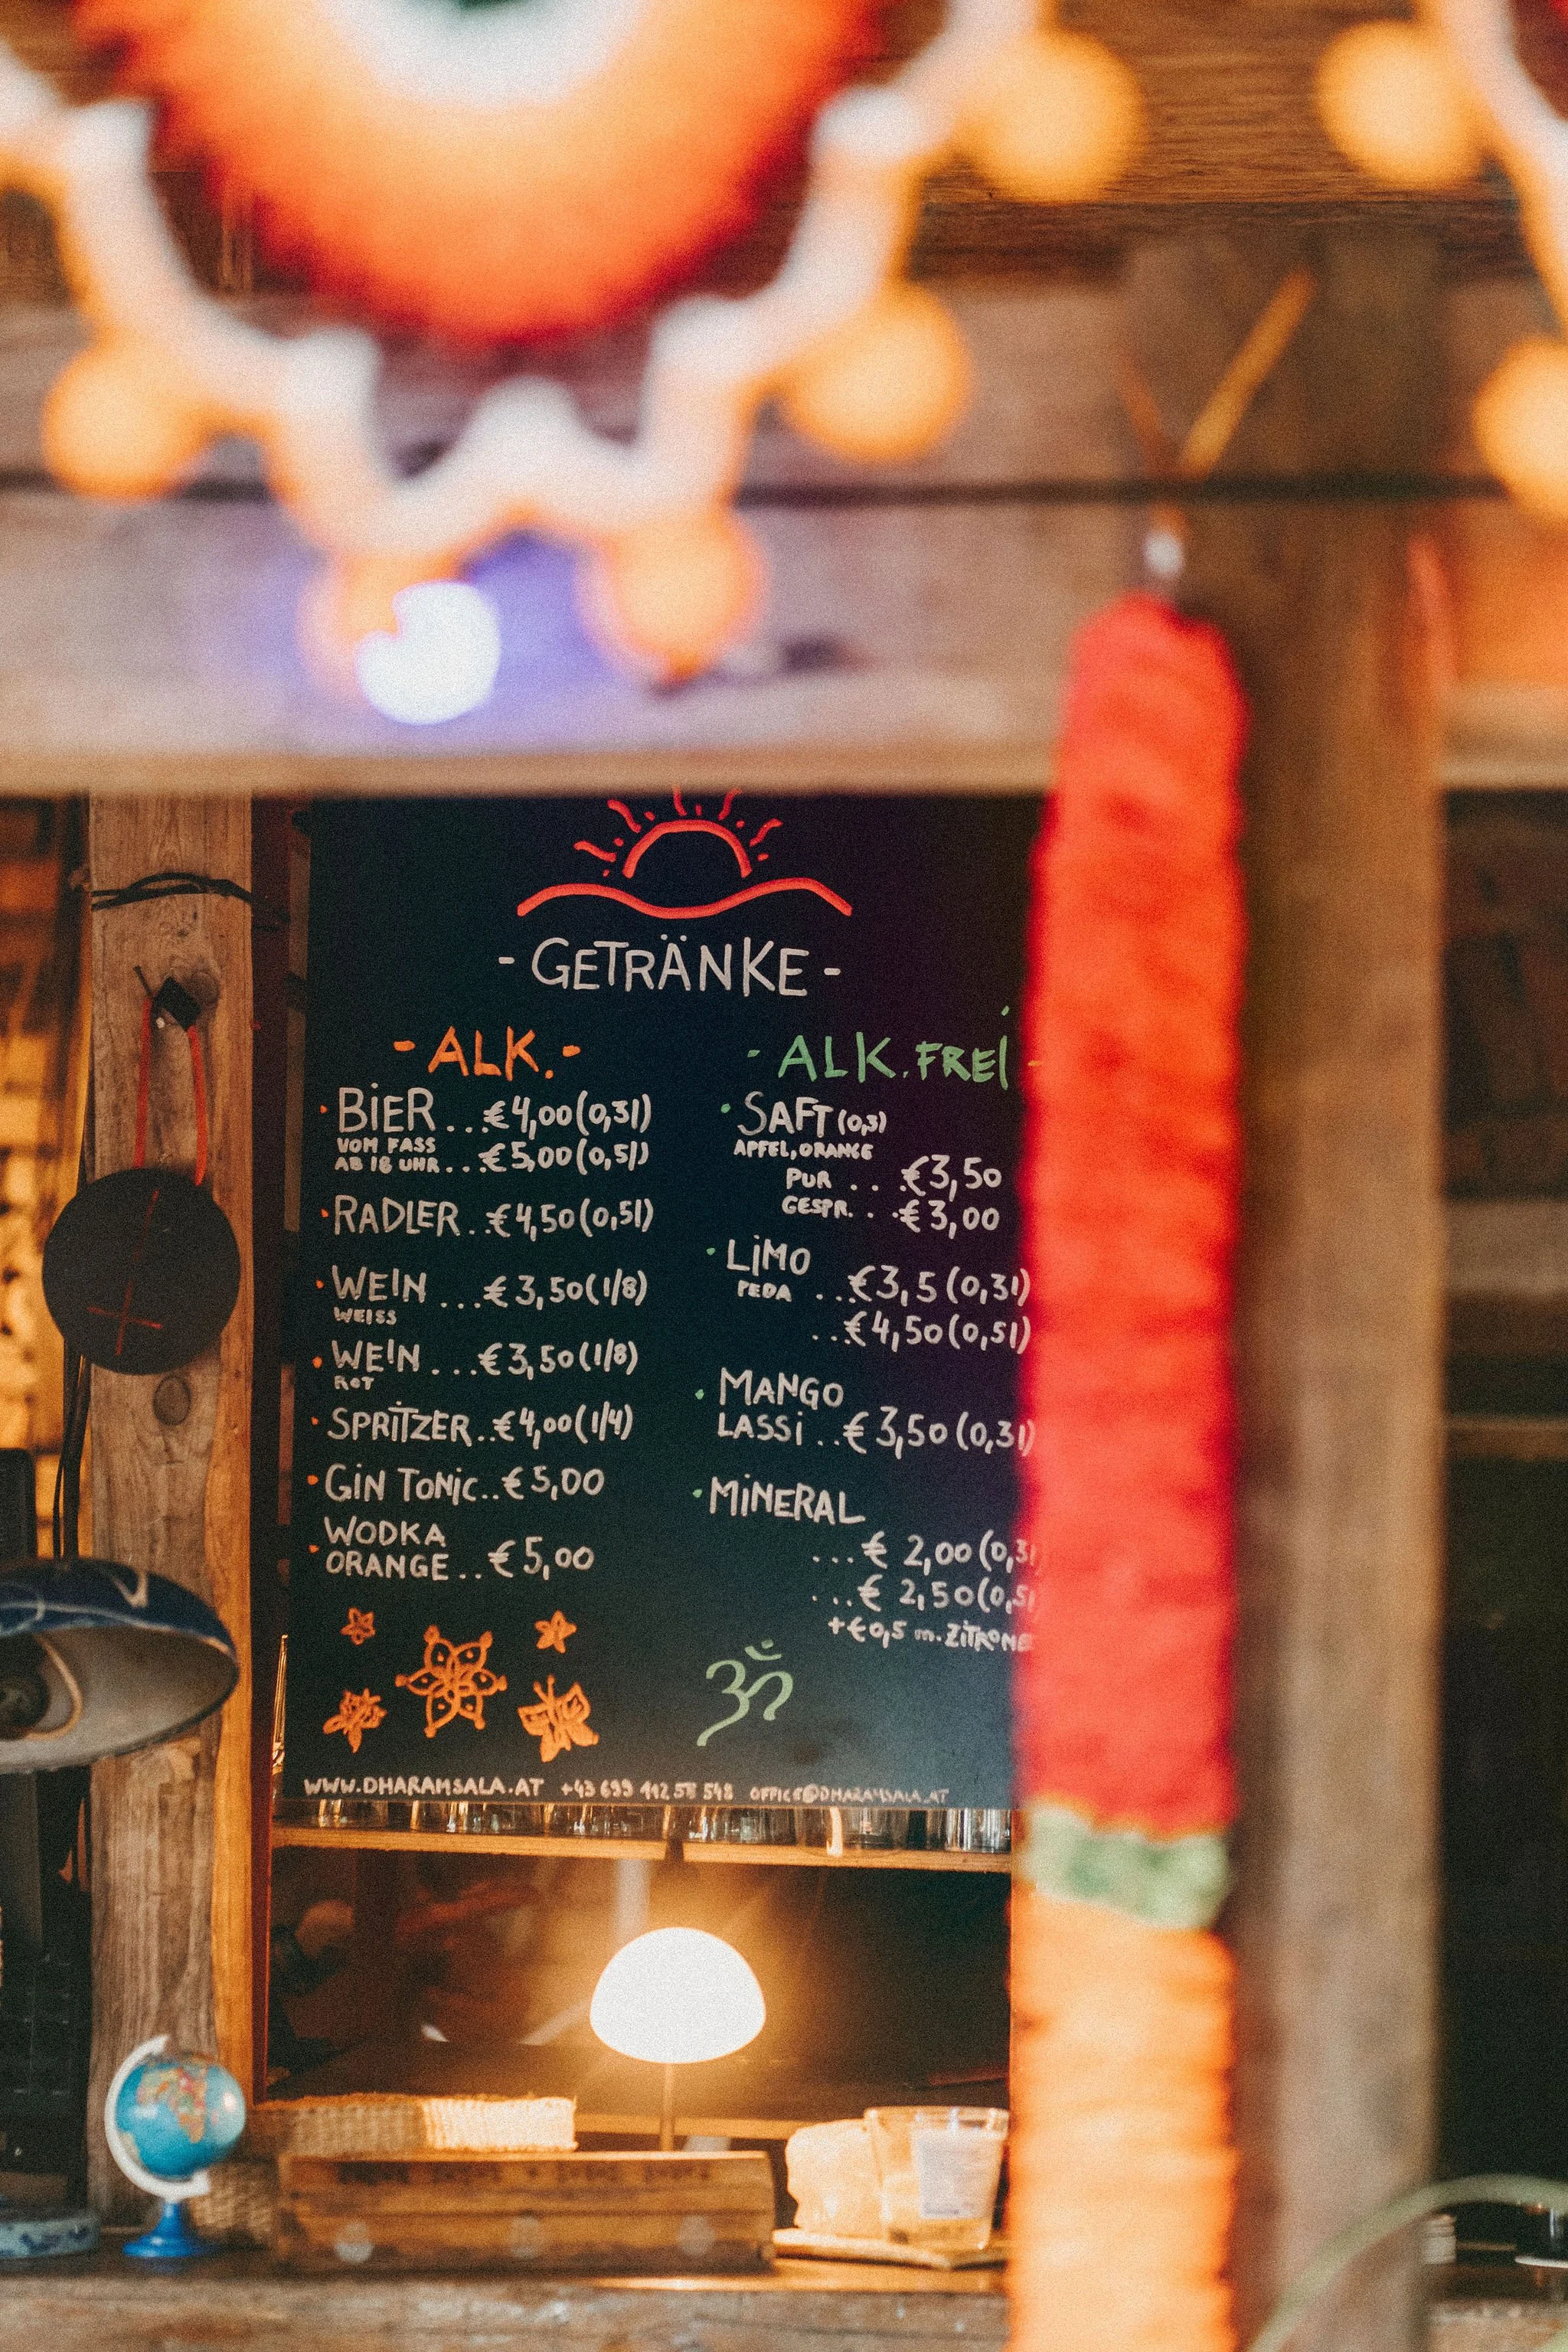 - GETRÄNKE -
- ALK. -
• BIER ... €4,00 (0,3l)
VOM FASS
AB 18 UHR ... €5,00 (0,5l)
• RADLER .. €4,50 (0,5l)
• WEIN ... € 3,50 (1/8)
WEISS
• WEIN ... €3,50 (1/8)
ROT
• SPRITZER .. €4,00 (1/4)
• GIN TONIC .. € 5,00
• WODKA
ORANGE .. € 5,00
- ALK. FREI -
• SAFT (0,3)
APFEL, ORANGE
PUR ... €3,50
GESPR. ... € 3,00
• LIMO
PEDA ... €3,5 (0,3l)
... €4,50 (0,5l)
• MANGO
LASSI .. € 3,50 (0,3l)
• MINERAL
... € 2,00 (0,3l
... € 2,50 (0,5l
+ € 0,5 m. ZITRONE
ॐ
WWW.DHARAMSALA.AT +43 699 112 58 548 OFFICE@DHARAMSALA.AT